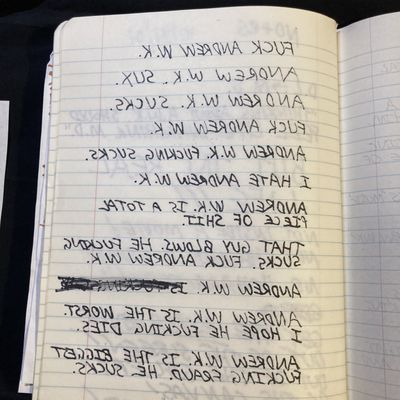 FUCK ANDREW W.K.
ANDREW W.K. SUX.
ANDREW W.K. SUCKS.
FUCK ANDREW W.K.
ANDREW W.K. FUCKING SUCKS.
I HATE ANDREW W.K.
ANDREW W.K. IS A TOTAL
PIECE OF SHIT.
THAT GUY BLOWS. HE FUCKING
SUCKS. FUCK ANDREW W.K.
ANDREW W.K. IS FUCKING
ANDREW W.K. IS THE WORST.
I HOPE HE FUCKING DIES.
ANDREW W.K. IS THE BIGGEST
FUCKING FRAUD. HE SUCKS.